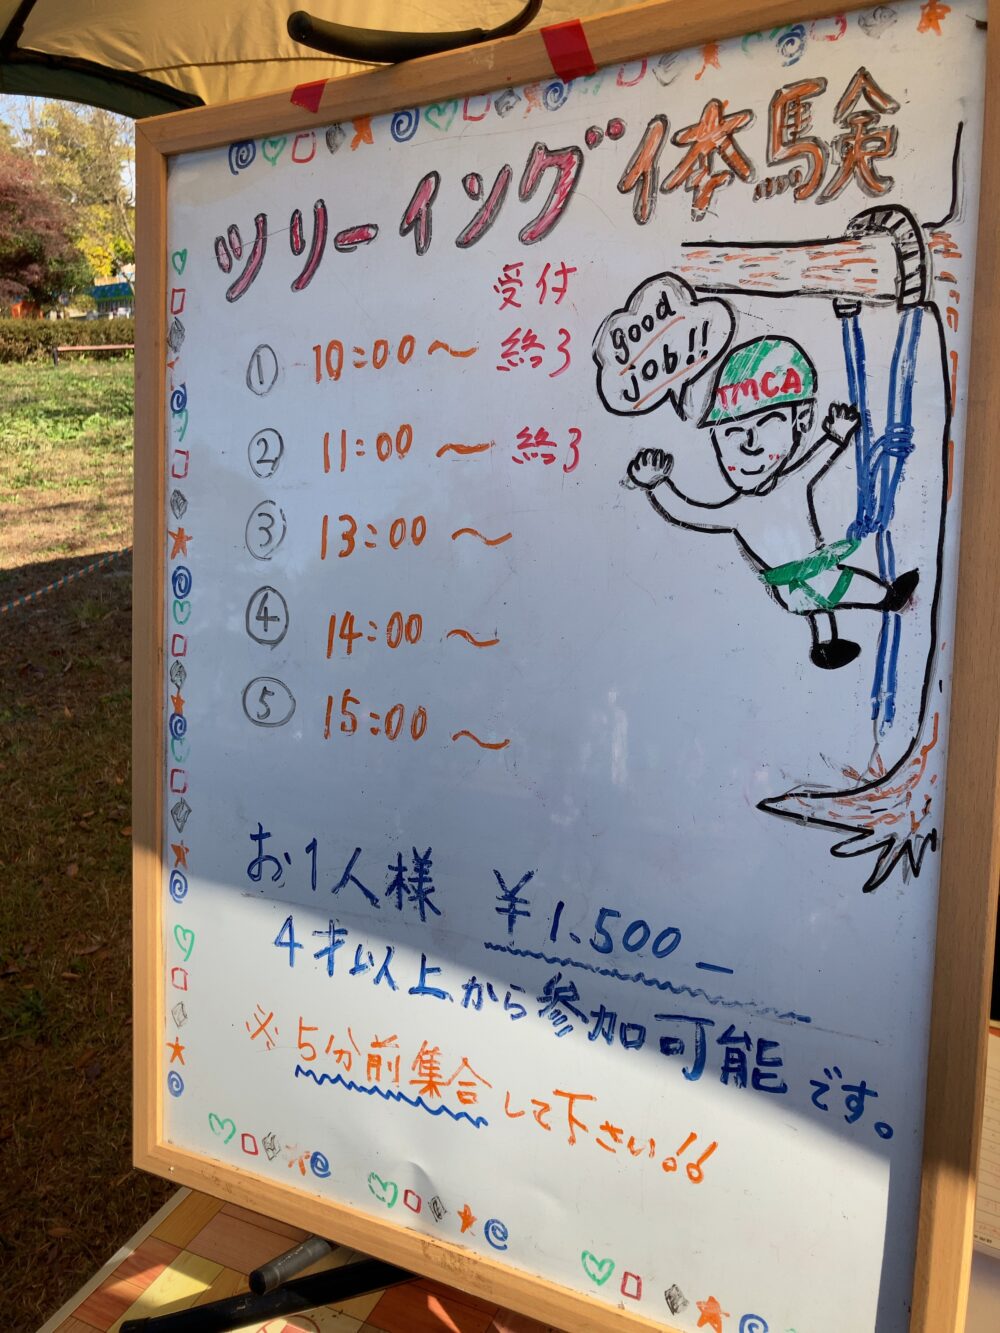 ツリーイング体験
受付
① 10:00～ 終了
② 11:00～ 終了
③ 13:00～
④ 14:00～
⑤ 15:00～
good
job!!
TMCA
お1人様 ¥1.500-
4才以上から参加可能です。
※5分前集合して下さい!!